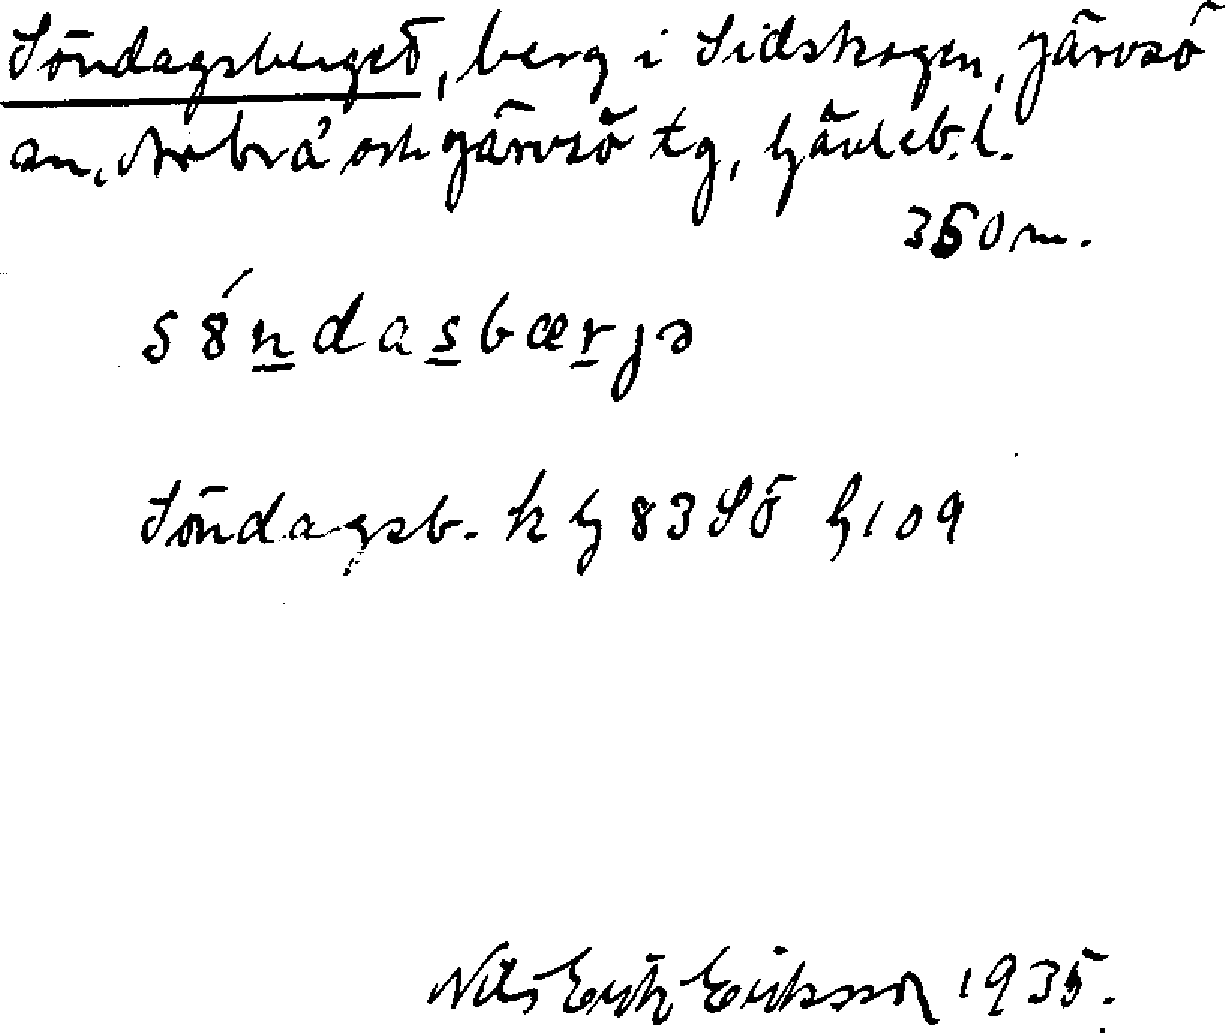 Söndagsberget, berg i Sidskogen, Järvsö
sn, Arbrå och Järvsö tg, Gävleb. l.
350 m.
s8́ndasbærjə
Söndagsb. k G 83 SÖ G 109
Nils Erik Eriksson 1935.